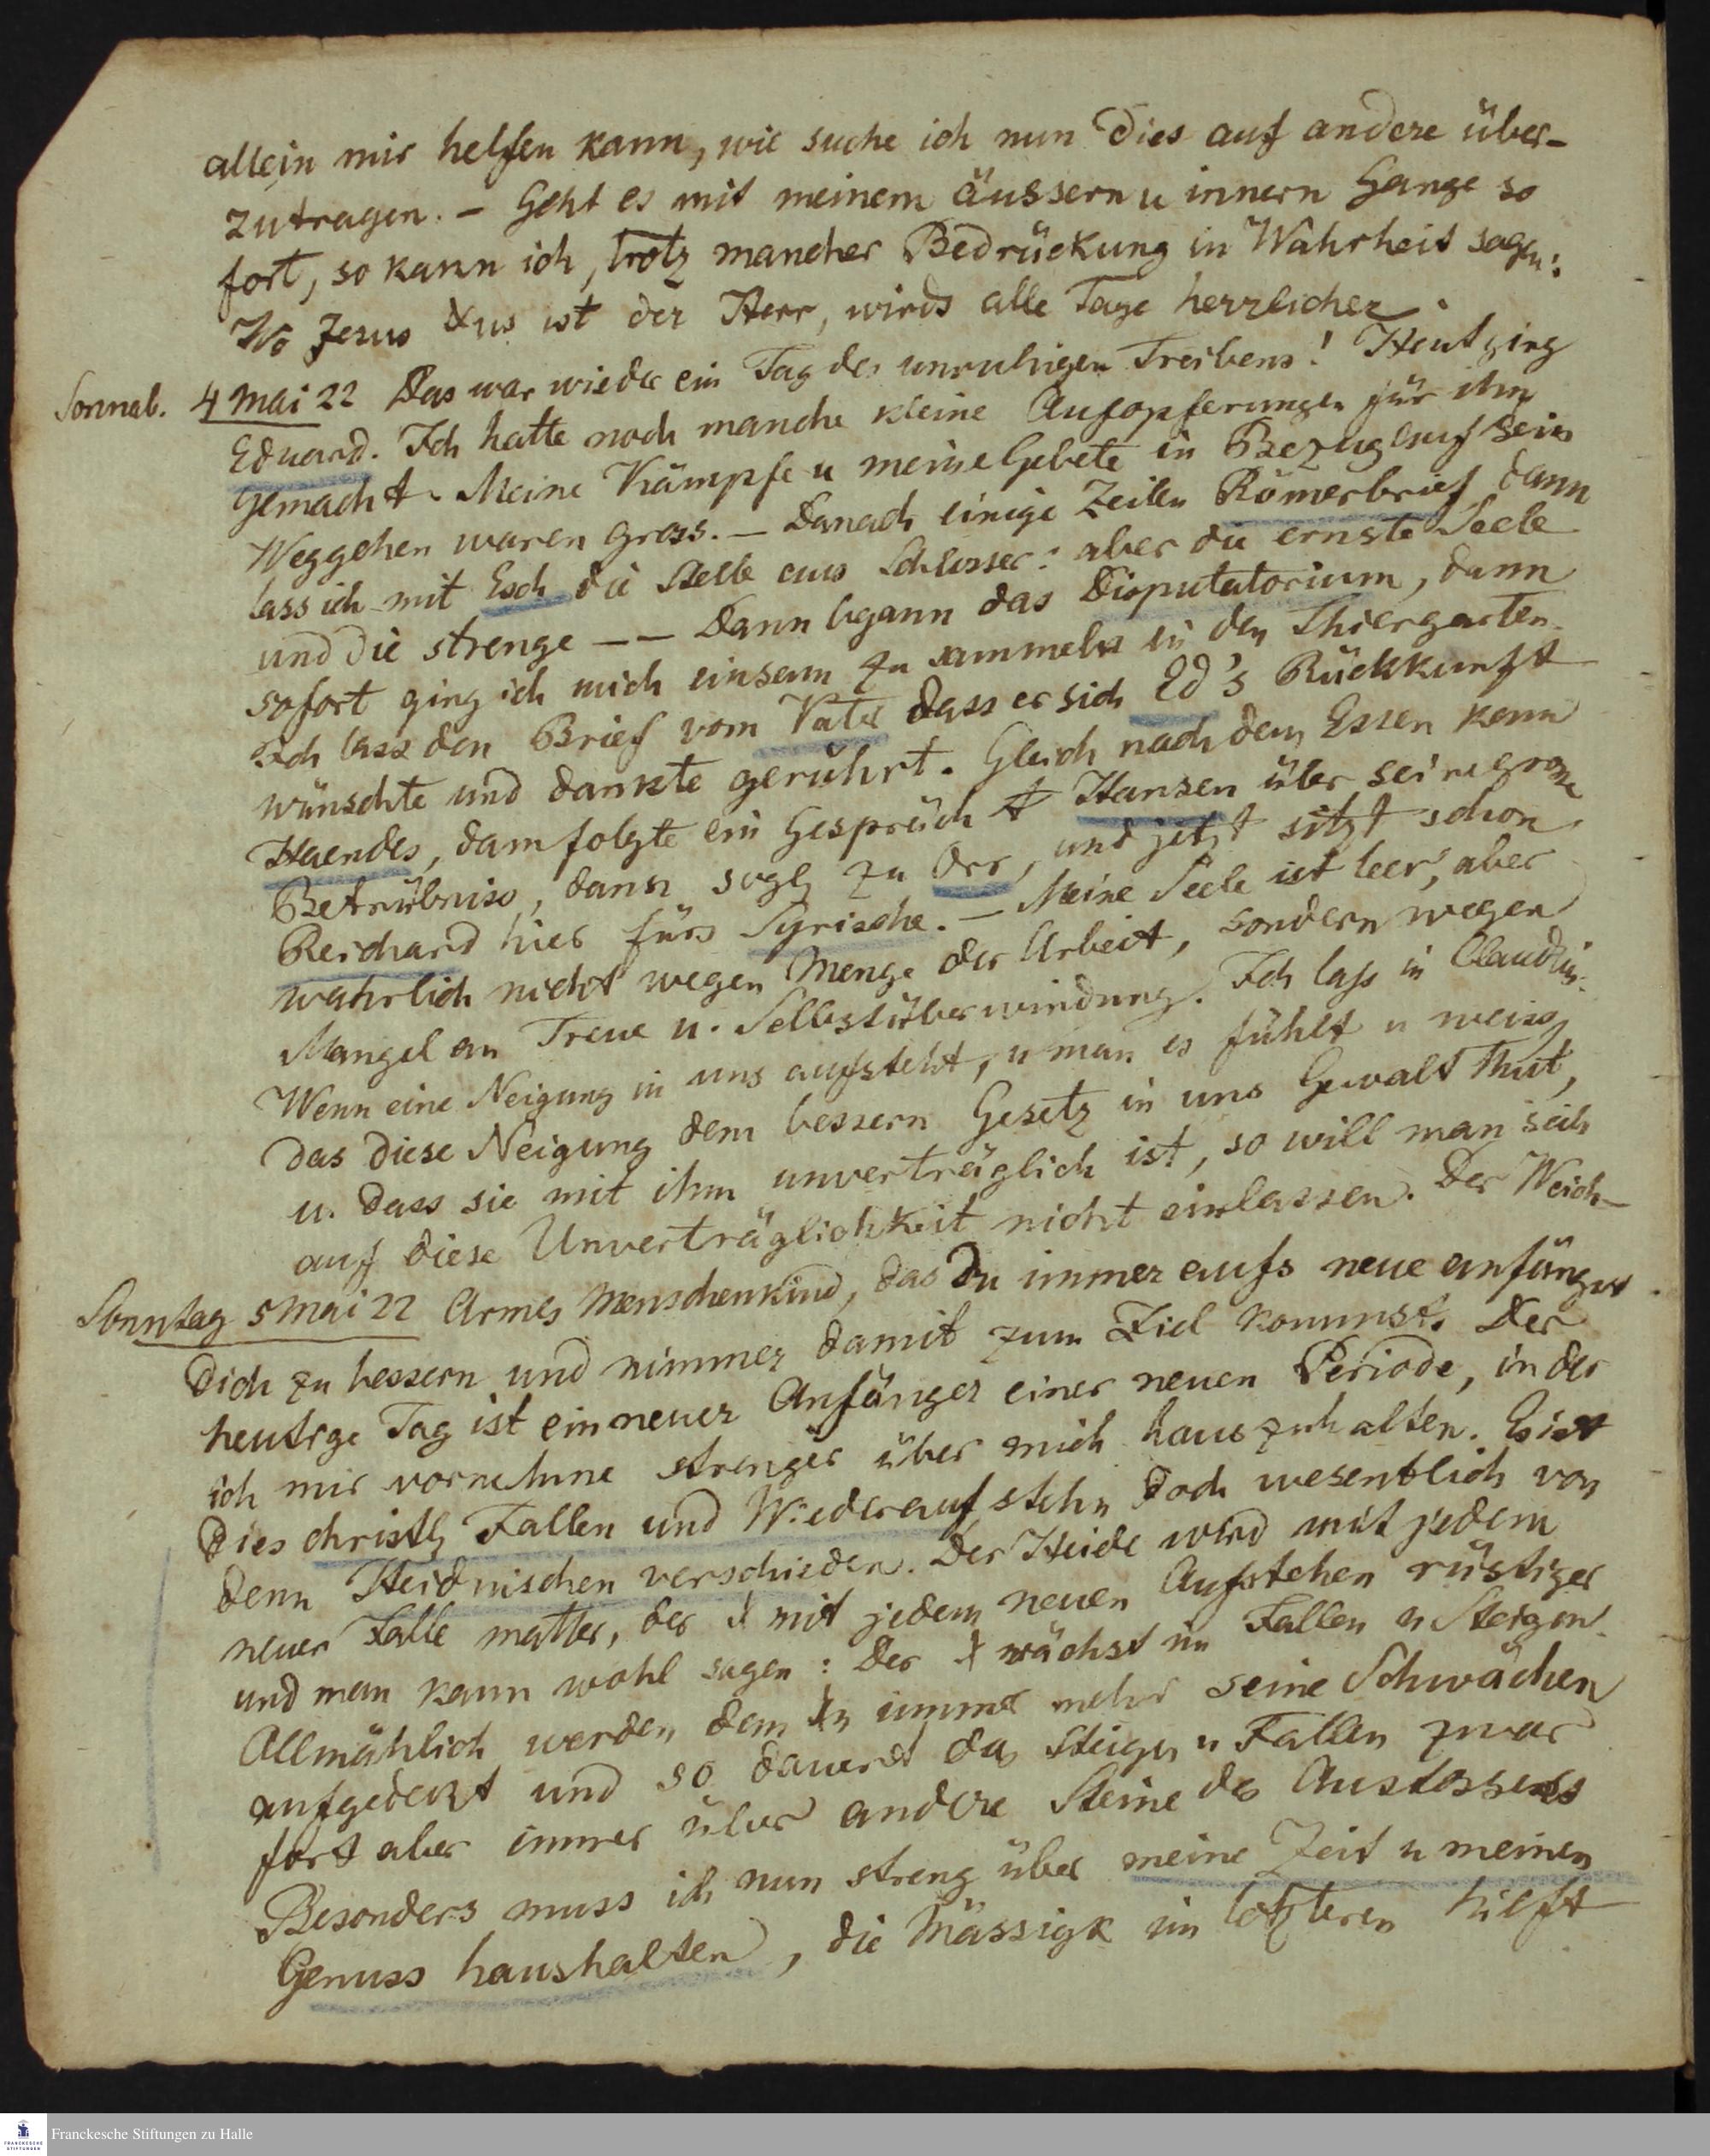 allein mir helfen kann, wie suche ich nun dies auf andere über-
zutragen. – Geht es mit meinem äussern u innern Gange so
fort, so kann ich, trotz mancher Bedrückung in Wahrheit sagen:
Wo Jesus Xus ist der Herr, wirds alle Tage herrlicher.
Sonnab. 4 Mai 22 Das war wieder ein Tag des unruhigen Treibens! Heut ging
Eduard. Ich hatte noch manche kleine Aufopferungen für ihn
gemacht. Meine Kämpfe u meine Gebete in Bezug auf sein
Weggehen waren gross. – Danach einige Zeilen Römerbrief dann
lass ich mit Esch die Stelle aus Schlosser: aber die ernste Seele
und die strenge – – Dann begann das Disputatorium, dann
sofort ging ich mich einsam zu sammeln in den Thiergarten.
Ich lass den Brief vom Vater dass er sich Ed's Rückkunft
wünschte und dankte gerührt. Gleich nach dem Essen kam
Haendes, dann folgte ein Gespräch Hansen über seine grosse
Betrübniss, dann sogl zu Orr, und jetzt sitzt schon
Reichard hier fürs Syrische. – Meine Seele ist leer, aber
wahrlich nicht wegen Menge der Arbeit, sondern wegen
Mangel an Treue u. Selbstüberwindung. Ich lass in Claudius:
Wenn eine Neigung in uns aufsteht, u man es fühlt u weiss,
das diese Neigung dem bessern Gesetz in uns Gewalt thut,
u. dass sie mit ihm unverträglich ist, so will man sich
auf diese Unverträglichkeit nicht einlassen. Der Weich–
Sonntag 5 Mai 22 Armes Menschenkind, das Du immer aufs neue anfängst
Dich zu bessern und nimmer damit zum Ziel kommst. Der
heutige Tag ist ein neuer Anfänger einer neuen Periode, in der
ich mir vornehme strenger über mich hauszuhalten. Es ist
dies christl Fallen und Wiederaufstehn doch wesentlich von
denn Heidnischen verschieden. Der Heide wird mit jedem
neuen Falle matter, der X mit jedem neuen Aufstehen rüstiger
und man kann wohl sagen: Der X wächst im Fallen u Steigen.
Allmählich werden dem Xn immer mehr seine Schwächen
aufgedeckt und so dauert das Steigen u Fallen zwar
fort aber immer über andere Steine des Anstossens
Besonders muss ich nun streng über meine Zeit u meinen
Genuss haushalten, die Mässigk im letzteren hilft
Franckesche Stiftungen zu Halle